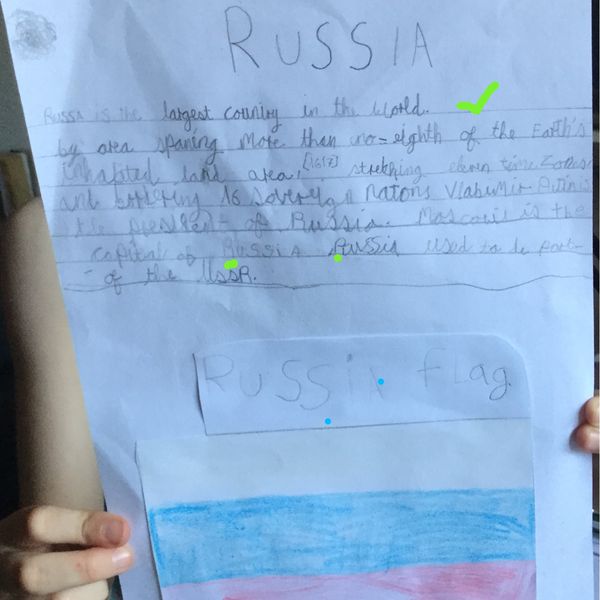 RUSSIA
RUSSA is the largest country in the world.
by area spaning more than one-eighth of the Earth's
inhabited land area,[16][17] stretching eleven time zones
and bordering 16 sovereign nations Vladimir Putin is
the president of Russia. Moscow is the
capital of Russia. Russia used to be part
of the USSR.
RUSSIA flag